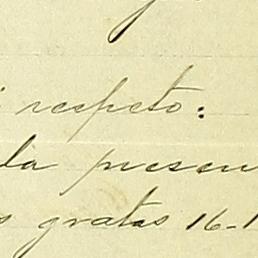 respeto:
la presen
s gratas 16-1